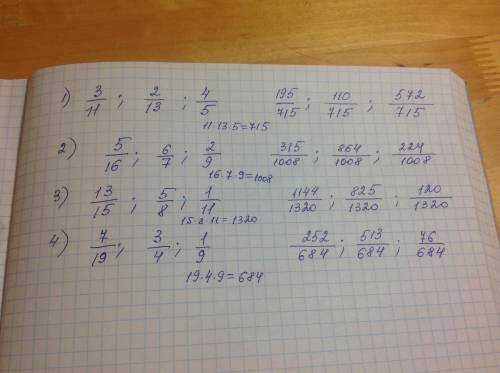 1) 3/11 ; 2/13 ; 4/5 195/715 ; 110/715 ; 572/715
11·13·5=715
2) 5/16 ; 6/7 ; 2/9 315/1008 ; 864/1008 ; 224/1008
16·7·9=1008
3) 13/15 ; 5/8 ; 1/11 1144/1320 ; 825/1320 ; 120/1320
15·8·11=1320
4) 7/19 ; 3/4 ; 1/9 252/684 ; 513/684 ; 76/684
19·4·9=684